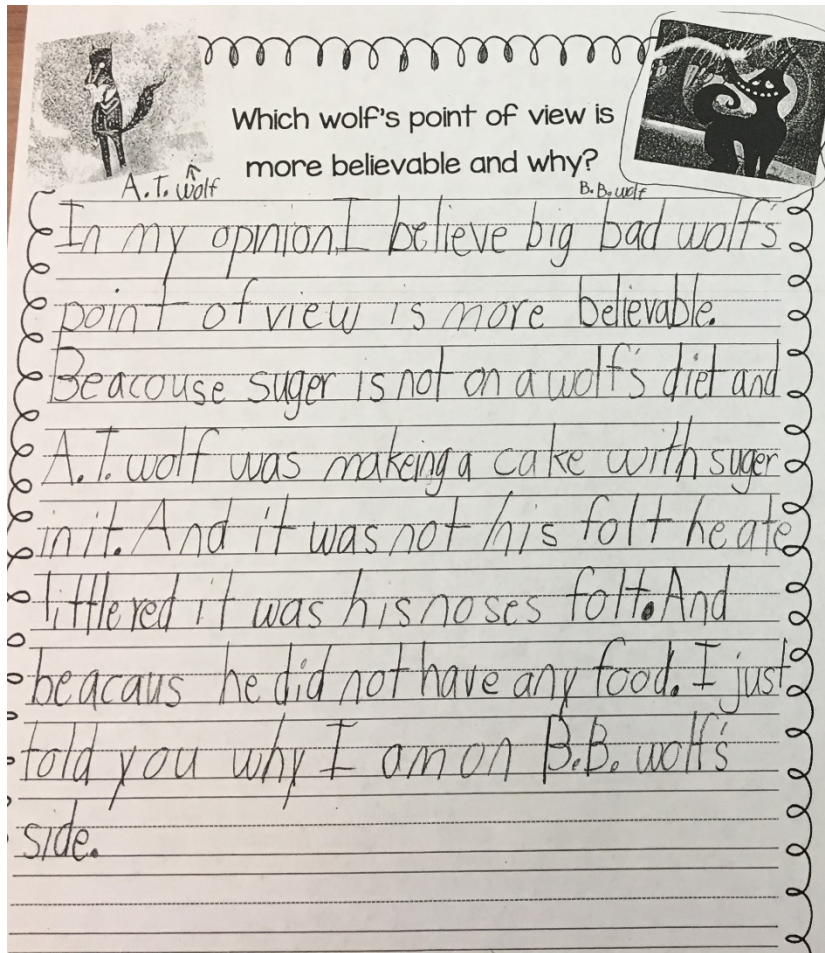 Which wolf's point of view is
more believable and why?
A.T. wolf
B.B. wolf
In my opinion, I believe big bad wolf's
point of view is more believable.
Beacouse suger is not on a wolf's diet and
A.T. wolf was makeing a cake with suger
in it. And it was not his folt he ate
little red it was his noses folt. And
beacaus he did not have any food. I just
told you why I am on B.B. wolf's
side.